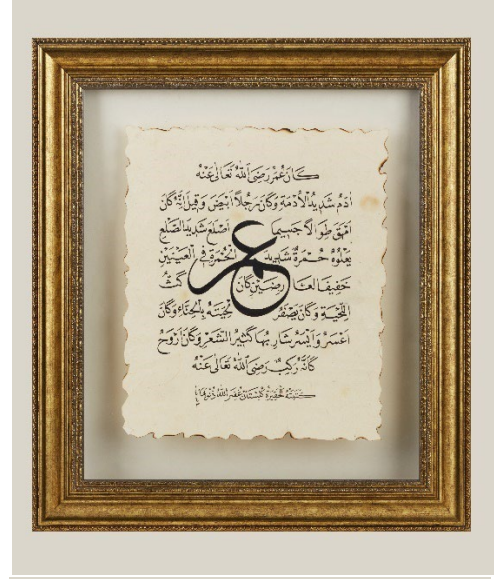 كَانَ عُمَرُ رَضِيَ اللّٰهُ تَعَالٰى عَنْهُ
اٰدَمَ شَدِيدُ الْاُدْمَةِ وَكَانَ رَجُلًا اَبْيَضَ وَقِيلَ اِنَّهُ كَانَ
اَمْهَقَ طِوَالًا جَسِيمًا اَصْلَعَ شَدِيدَ الصَّلَعِ
يَعْلُوهُ حُمْرَةٌ شَدِيدَ الْحُمْرَةِ فِي الْعَيْنَيْنِ
عمر
خَفِيفَ الْعَارِضَيْنِ كَانَ كَثَّ
اللِّحْيَةِ وَكَانَ يَصْفُرُ لِحْيَتَهُ بِالْحِنَّاءِ وَكَانَ
اَعْسَرَ وَاَيْسَرَ شَارِبُهَا كَثِيرُ الشَّعْرِ وَكَانَ اَرْوَحَ
كَاَنَّهُ رَكِبٌ رَضِيَ اللّٰهُ تَعَالٰى عَنْهُ
كتبته گلستان غفر الله ذنوبها